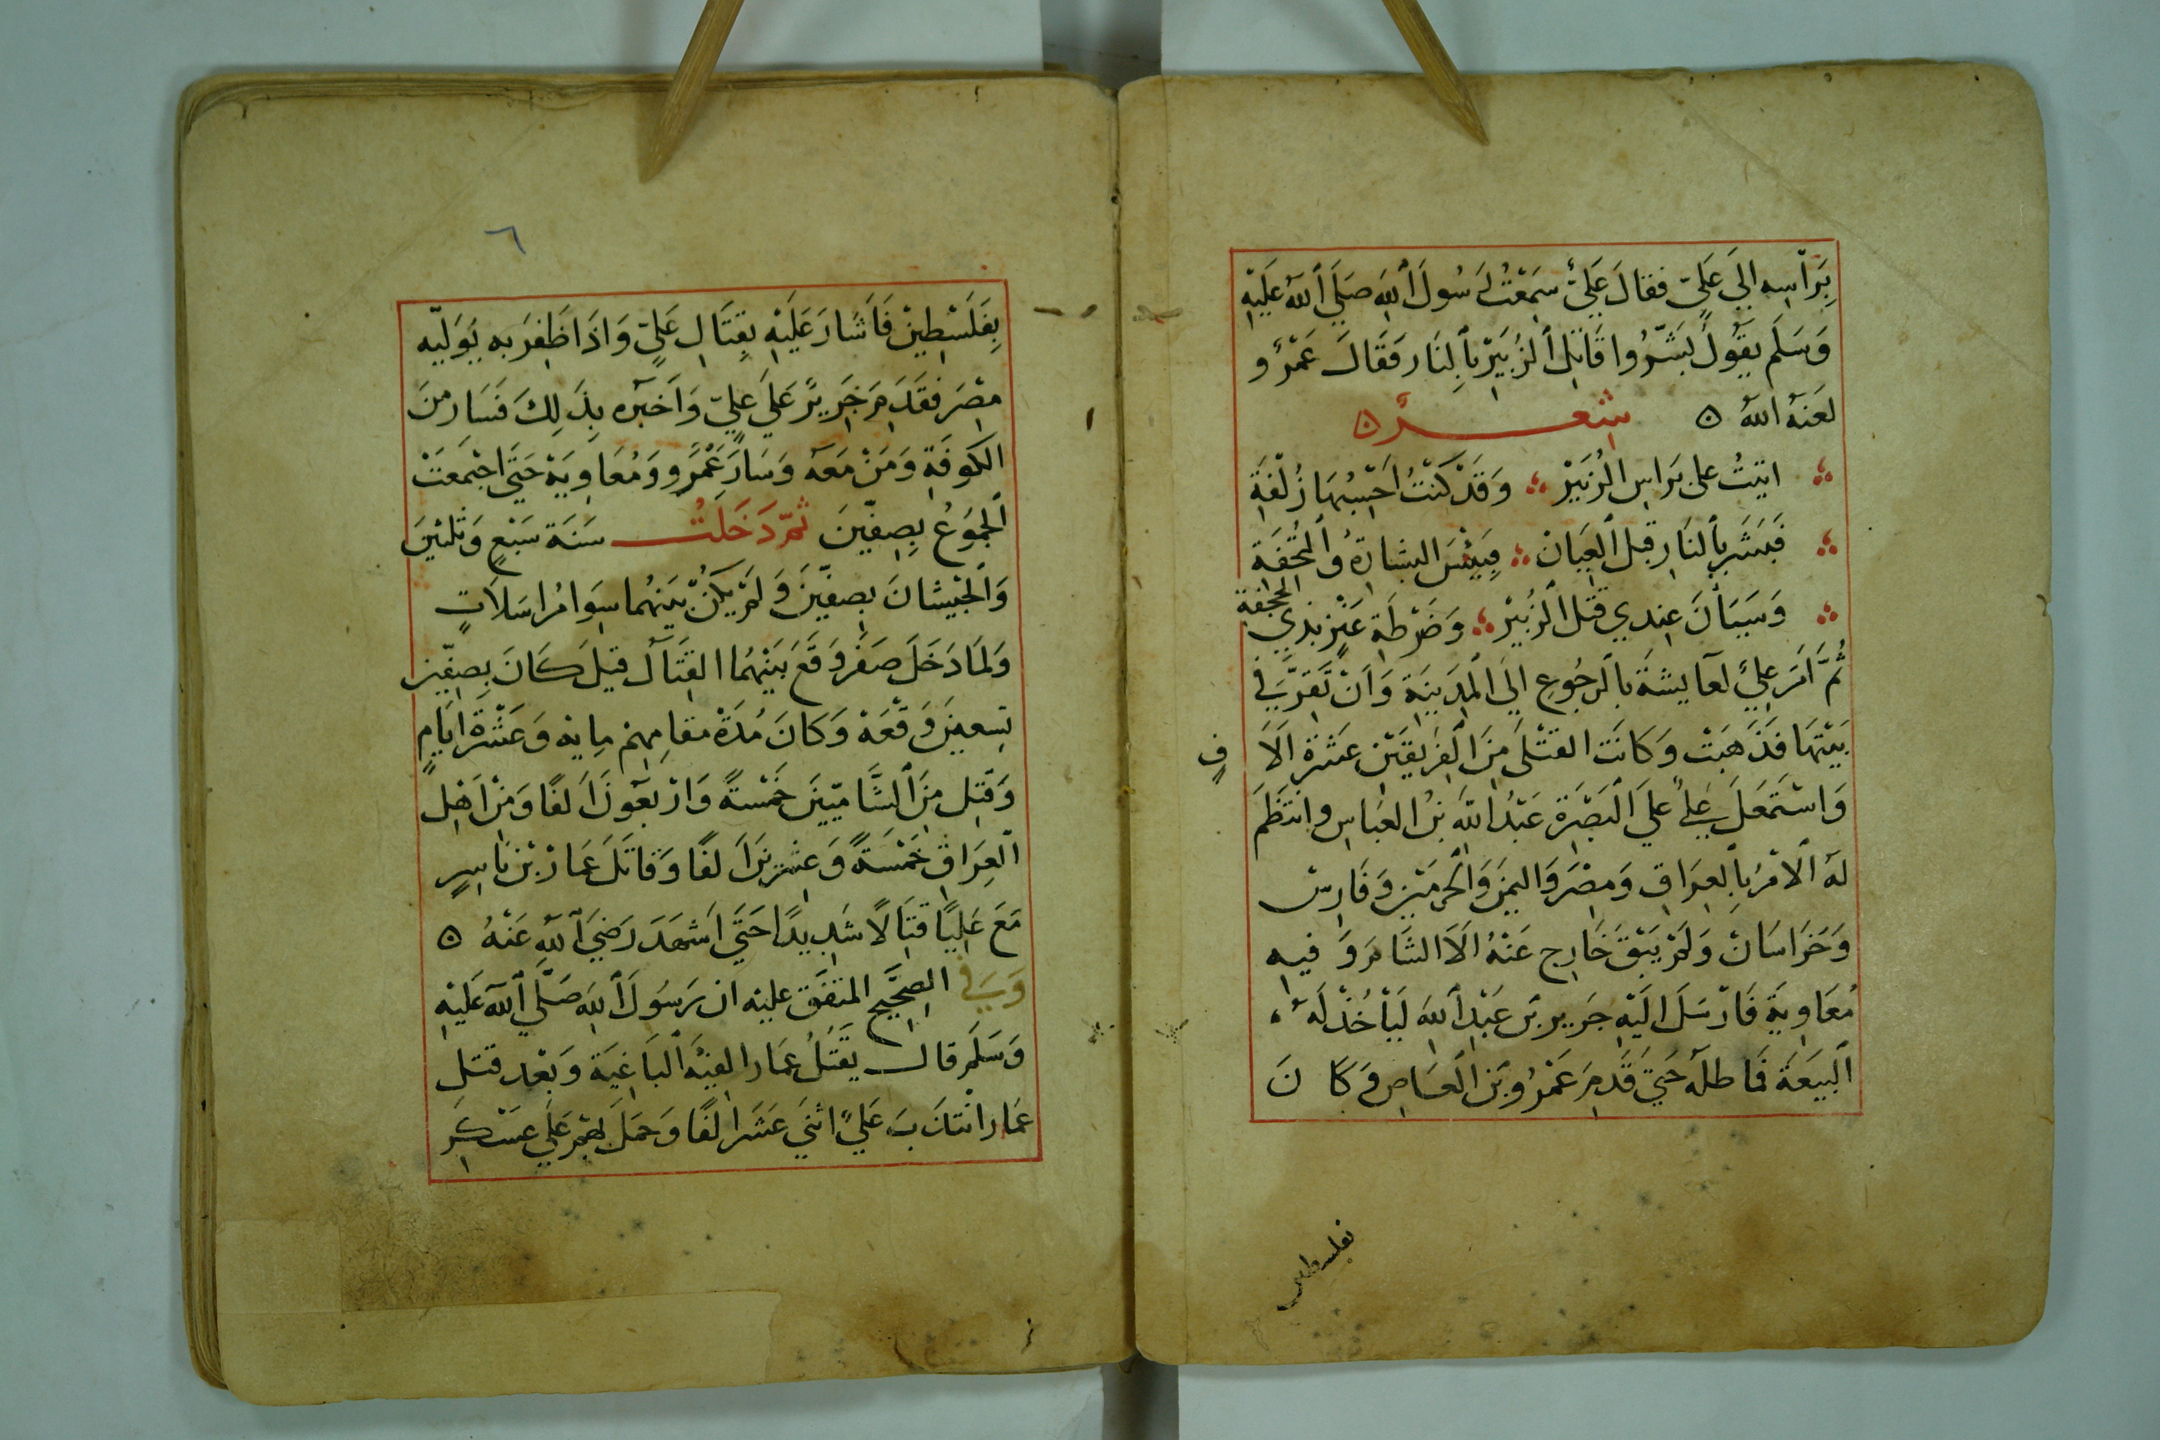 بِرَاْسِه اِلَي عَلِيّ فقالَ عَلِيٌّ سَمِعْتُ رَسُولَ اللهِ صَلَّي اللهُ عَلَيْهِ
وَسَلَم يقُولُ بَشّرُوا قَاتِل الزُبَيْر بالنَار فَقَالَ عَمْرُو
لعَنَهُ اللهُ ه شعر ه
اتيتُ على براسِ الزُبَيْر وَقَدْ كنْتُ اَحْسِبُهَا زُلْفَة
فَبَشَر بالنَارِ قبل العِيَانْ فَبِئْسَ البشارةُ وُالتُحْفَة
وَسَيَّانَ عِندي قتْل الزُبيْر وَضَرْطَة عَنْزٍ بذي الجحفة
ثُمَّ اَمَرَ عَلِيٌ لعَايشَة بالرجُوعِ الَي المَدِينَةِ وَاَنْ تَقَرَّ في
بَيْتهَا فَذَهَبَتْ وَكانَت القتْلَى مِنَ الفَرِيقَيْن عَشْرة اَلَا فٍ
وَاسْتَعمَلَ عَلِيٌ علَي البَصْرَة عَبْدُ اللهِ بنُ العَبَاس وانتَظَمَ
لهُ الامْرُ بالعِرَاقِ وَمِصْرَ وَاليمَنِ وَالحَرمَيْن وَفَارِسْ
وَخَراسَانْ وَلَمْ يَبْقَ خَارِج عَنْهُ اِلَا الشَامَ وَ فيهِ
مُعَاوِيَةِ فَارْسَلَ اليْهِ جَرِير بن عَبْدِ اللهِ لَيَأخُذْ لَهُ
البَيعَةَ فَما طلهُ حَتيَ قَدِمَ عَمْرُو بَن العَاصِ وَكَا نَ
بفلسطين
٦
بِفَلَسْطِينْ فَاَشَارَ عَلَيْهِ بِقِتَالِ عَلِيٍّ وَاذَا ظَفِرَ به يُوَلّيه
مِصْرَ فقَدِمَ جَرِيرٌ عَلَي عَليّ وَاَخبَره بِذَلِكَ فَسَار منَ
الكُوفَةِ وَمَنْ مَعَهُ وَسَارَ عَمْرو وَمُعَاوِيَة حَتَي اجْتمعَتْ
الجمُوَعُ بِصِفّينَ ثمّ دَخَلَتْ سَنَة سَبْعٍ وَثَلثينَ
وَالجَيْشانَ بِصِفّيَن وَلمْ يكُنْ بَيْنهُما سِوَا مُراسَلاتٍ
وَلمَا دَخَلَ صَفَر وَقَعَ بَيْنهُما القِتَال قيلَ كَانَ بِصِفّين
تِسعِينَ وَقْعَة وَكانَ مُدَةْ مقامِهِمْ مِاية وَعَشْرَةَ ايَامٍ
وَقُتِل مِنَ الشَّاميّينَ خَمْسَةٌ وَارْبعُونَ اَلفًا وَمِنْ اَهْلِ
العِرَاقِ خَمْسَةً وَعِشْرينَ اَلفًا وَقاتَلَ عَمَارْ بْن يَاسِرٍ
مَعَ عَلِيًا قتَالًا شَدِيدًا حَتَّي اَسْتشهَدَ رَضيَ اللهُ عَنْهُ ه
وَفي الصِحَيْحِ المتفَق عليْه ان رَسُولَ اللهِ صَلَّي اللهُ عَلَيْهِ
وَسَلَم قال يقْتُلُ عَمار الفِئَة البَاغِيَة وَبَعْد قتلِ
عَمار انْتدَبَ عَليٌ اثنَي عَشَر الفًا وَحمَلَ بهمْ عَلَي عَسْكرِ